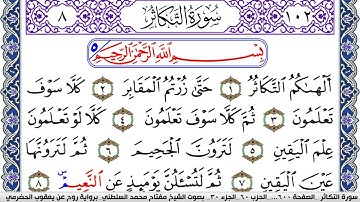 ٨ سُورَةُ التَّكَاثُرِ ١٠٢
بِسْمِ اللَّهِ الرَّحْمَٰنِ الرَّحِيمِ ٥
أَلْهَاكُمُ التَّكَاثُرُ ١ حَتَّىٰ زُرْتُمُ الْمَقَابِرَ ٢ كَلَّا سَوْفَ
تَعْلَمُونَ ٣ ثُمَّ كَلَّا سَوْفَ تَعْلَمُونَ ٤ كَلَّا لَوْ تَعْلَمُونَ
عِلْمَ الْيَقِينِ ٥ لَتَرَوُنَّ الْجَحِيمَ ٦ ثُمَّ لَتَرَوُنَّهَا
عَيْنَ الْيَقِينِ ٧ ثُمَّ لَتُسْأَلُنَّ يَوْمَئِذٍ عَنِ النَّعِيمِ ٨
سورة التكاثر الصفحة ٦٠٠... الحزب ٦٠ الجزء ٣٠ بصوت الشيخ مفتاح محمد السلطني برواية روح عن يعقوب الحضرمي